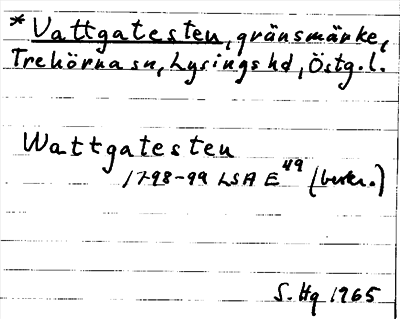 * Vattgatesten, gränsmärke,
Trehörna sn, Lysings hd, Östg.l.
Wattgatesten
1798-99 LSA E 49 (beskr.)
S. Hg 1965